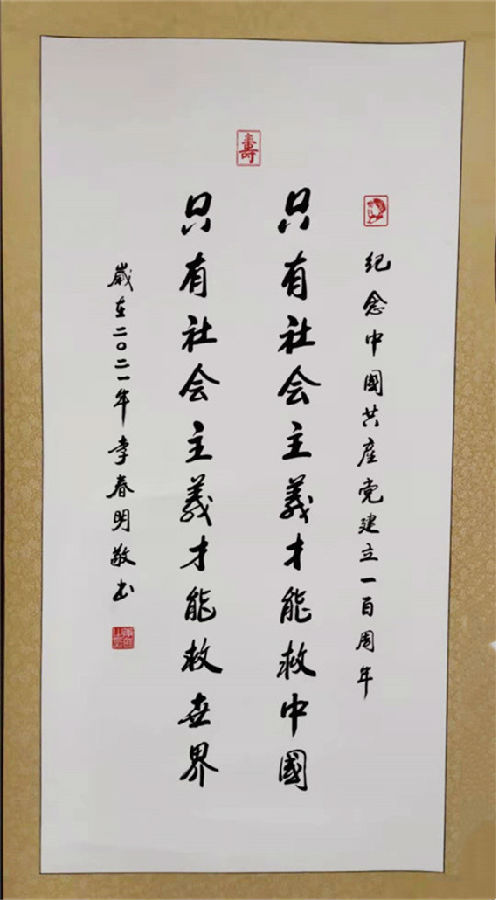 紀念中國共產党建立一百周年
壽
只有社会主義才能救中國
只有社会主義才能救世界
嵗在二〇二一年李春明敬书